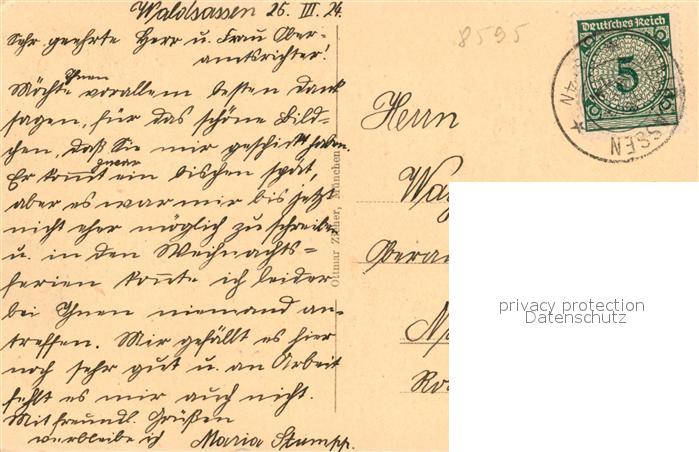 Waldsassen 26. III. 24.
Sehr geehrte Herr u. Frau Ober-
amtsrichter!
Ihnen
Möchte vorallem besten Dank
sagen, für das schöne Bild-
chen, daß Sie mir geschickt haben.
zwar
Er kommt ein bischen spät,
aber es war mir bis jetzt
nicht eher möglich zu schreiben
u. in den Weihnachts=
ferien konnte ich leider
bei Ihnen niemand an-
treffen. Mir gefällt es hier
noch sehr gut u. an Arbeit
fehlt es mir auch nicht.
Mit freundl. Grüßen
verbleibe ich Maria Stumpp.
Ottmar Zieher, München
8595
Deutsches Reich
5
SSEN
Herrn
Oberam
privacy protection
Datenschutz